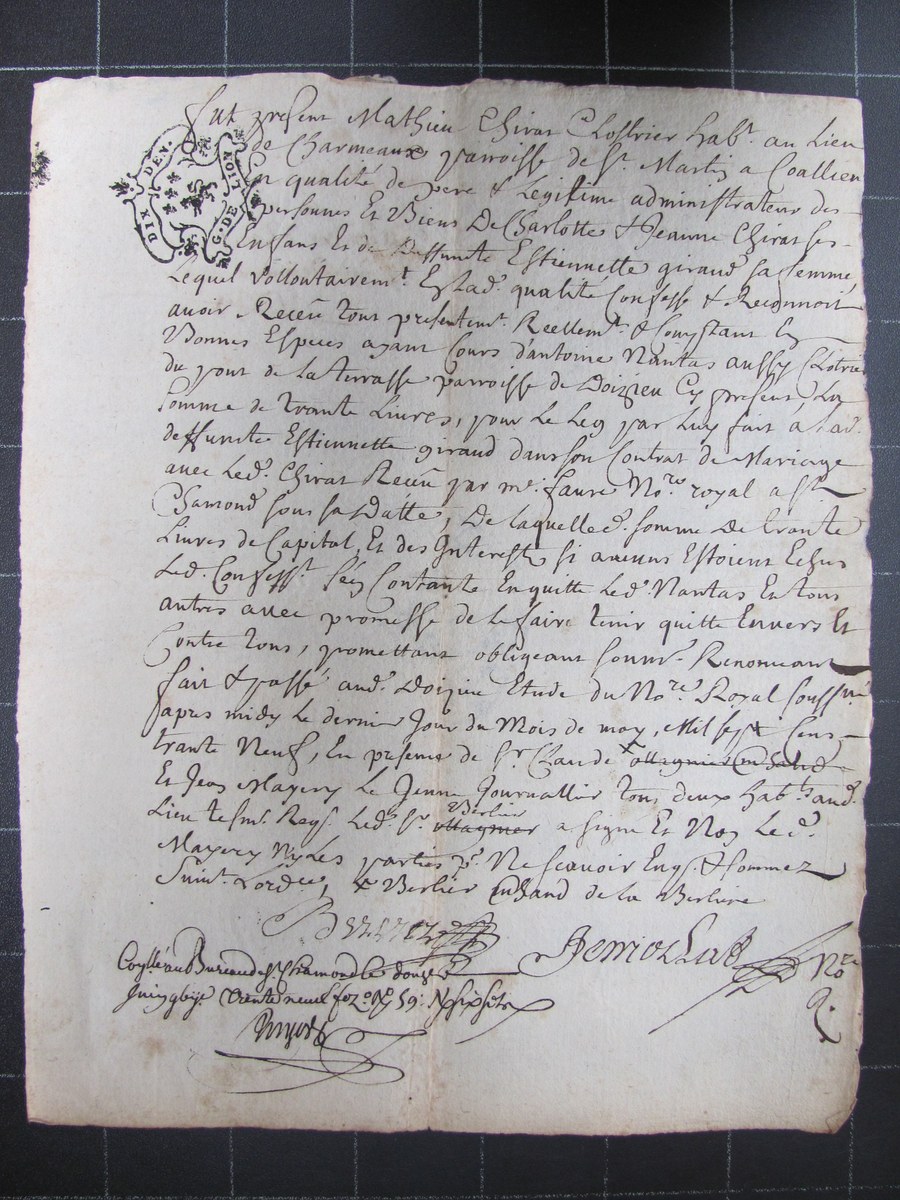 fut present Mathieu Chirat Clostrier habt. au Lieu
de Charmeaux parroisse de St. Martin a Coallieu
En qualité de pere & Legitime administrateur des
personnes Et Biens De Charlotte & Jeanne Chirat ses
Enfans Et de Deffunte Estiennette giraud sa femme
Lequel vollontairemt. Esd. qualité Confesse & Reconnoit
avoir Receu tout presentemt. Reellemt. & Contant En
Bonnes Especes ayant Cours d'antoine Nantas aussy Clotrier
du pont de La terrasse parroisse de Doizieu Cy present, La
somme de trante Livres, pour Le Leg par Luy fait a Lad.
deffunte Estiennette giraud dans son Contrat de Mariage
avec Led. Chirat Receu par me. faure Nore. royal a St.
Chamond sous sa Datte, De laquelle d. somme De trante
Livres de Capital, Et des Interest si aucuns Estoient Echus
Led. Confesst. s'en Contante En quitte Led. Nantas Et tous
autres avec promesse de Le faire tenir quitte Envers Et
Contre tous, promettant obligeant Renonceant
fait & passé aud. Doizieu Etude du Nore. Royal soussné
apres midy Le dernier Jour du Mois de may, Mil sept Cens
trante Neuf, En presence de Sr. Claude
Et Jean Mayery Le Jeune Journallier tous deux habts. aud.
Berlier
Lieu Led. Sr. a signé Et Non Led.
Mayery Ny Les parties pr. Ne scavoir Enqs. & Sommez
Suivt. Lordce, x Berlier mchand de la Berliere
Berlier
Nore
R.
Conllé au Bureau de St Chamond le douze
Juin trente neuf fo 20 No 59: